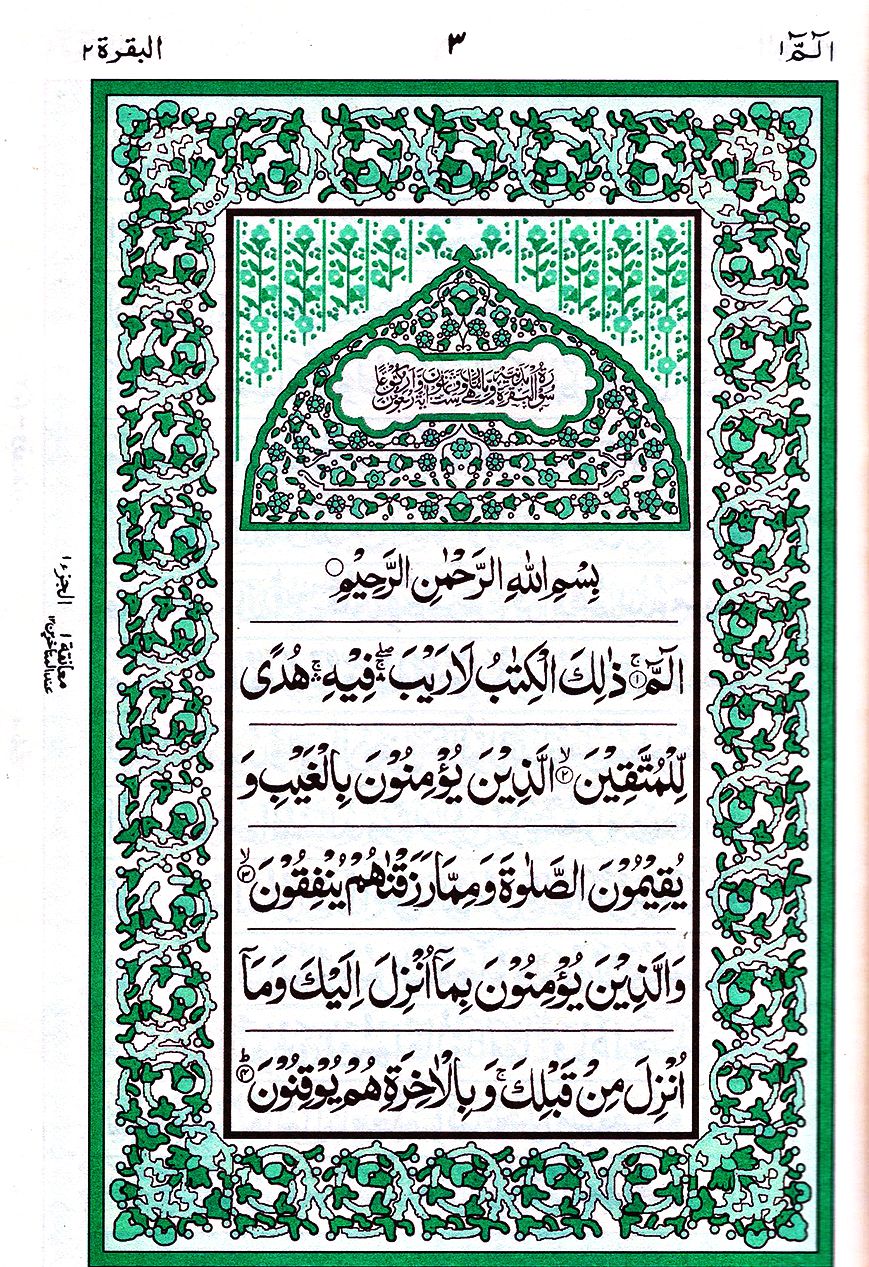 الٓمّٓ ١
٣
البقرة ٢
سورة البقرة مدنية وهي مائتان وست وثمانون آية وأربعون ركوعا
بِسْمِ اللهِ الرَّحْمٰنِ الرَّحِيْمِ ○
الٓمّٓ ۚ﴿١﴾ ذٰلِكَ الْكِتٰبُ لَا رَيْبَ ۛۖ فِيْهِ ۛۚ هُدًى
لِّلْمُتَّقِيْنَ ۙ﴿٢﴾ الَّذِيْنَ يُؤْمِنُوْنَ بِالْغَيْبِ وَ
يُقِيْمُوْنَ الصَّلٰوةَ وَمِمَّا رَزَقْنٰهُمْ يُنْفِقُوْنَ ۙ﴿٣﴾
وَالَّذِيْنَ يُؤْمِنُوْنَ بِمَآ اُنْزِلَ اِلَيْكَ وَمَآ
اُنْزِلَ مِنْ قَبْلِكَ ۚ وَبِالْاٰخِرَةِ هُمْ يُوْقِنُوْنَ ؕ﴿٤﴾
الجزء ١
معانقة ١
عند المتاخرين ١٢